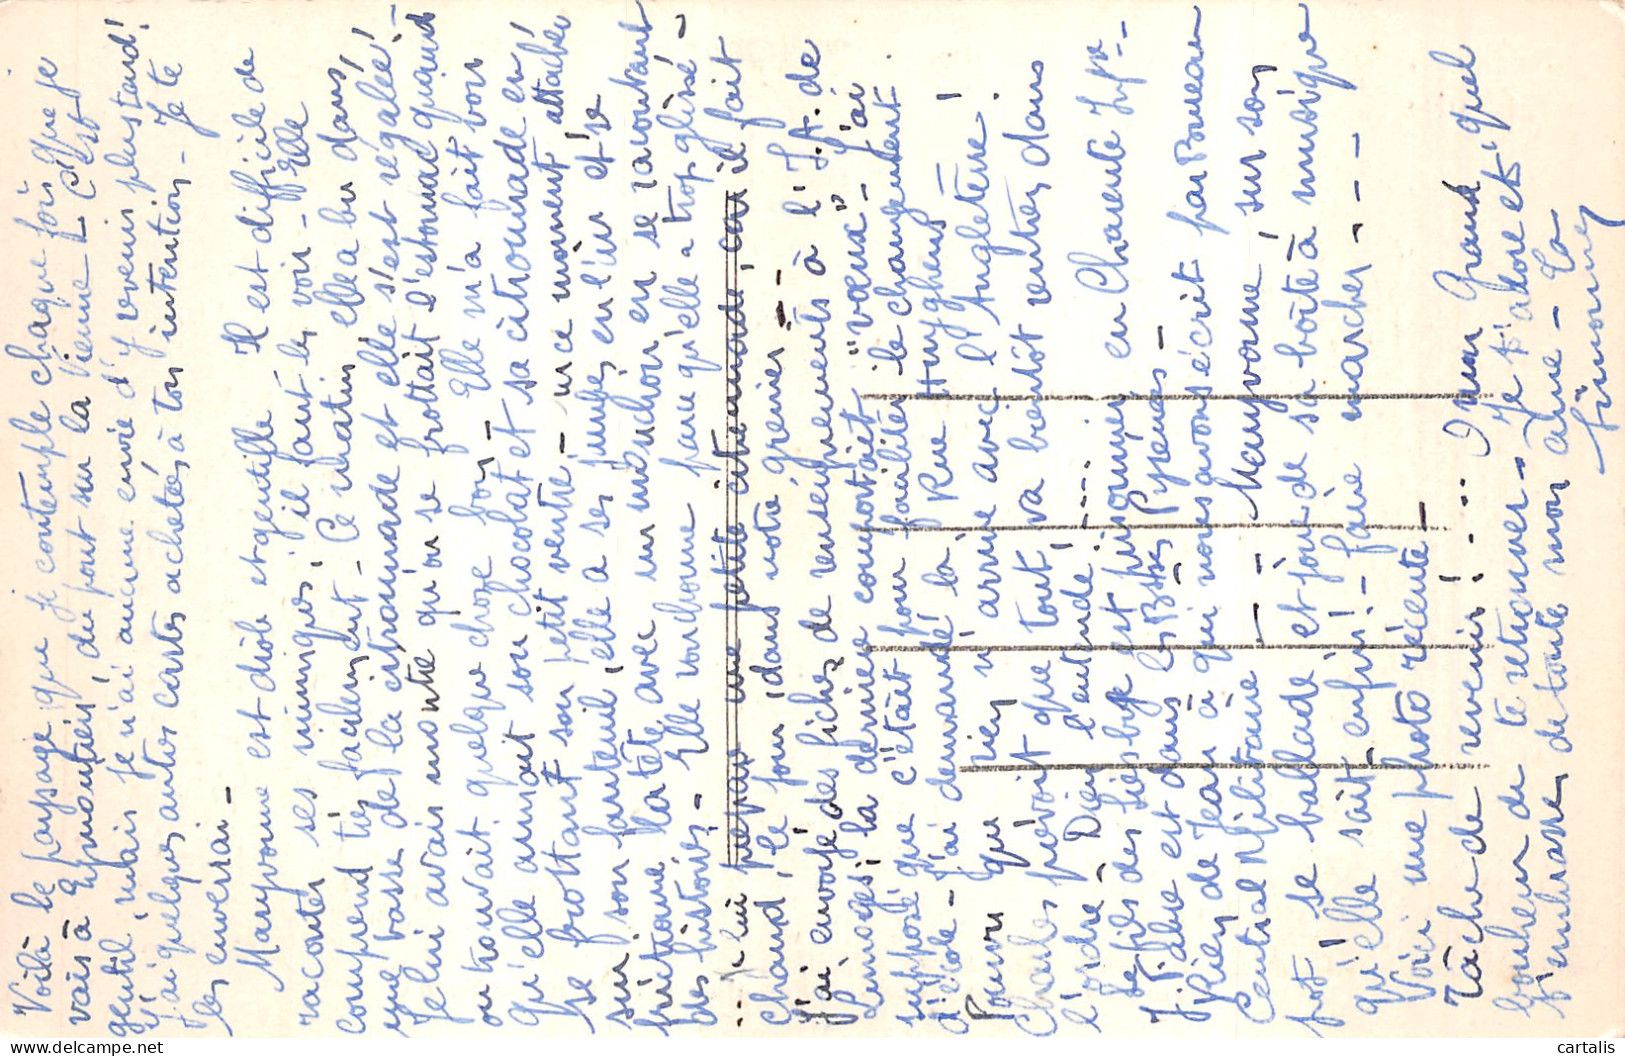 Voilà le paysage que je contemple chaque fois que je
vais à Eymoutiers, du pont sur la Vienne - C'est
gentil, mais je n'ai aucune envie d'y revenir plus tard!
J'ai quelques autres cartes achetées à ton intention - Je te
les enverrai -
Maryvonne est drôle et gentille Il est difficile de
raconter ses mimiques, il faut les voir - Elle
comprend très facilement - Ce matin, elle a bu dans,
une tasse de la citronnade et elle s'est régalée -
Je lui avais montré qu'on se frottait l'estomac quand
on trouvait quelque chose bon - Elle m'a fait voir
qu'elle aimait son chocolat et sa citronnade en
se frottant son petit ventre - un ce moment, attachée
sur son fauteuil, elle a ses jambes en l'air et s'se
frictionne la tête avec un mouchoir en se racontant
des histoires - Elle ronchonne parce qu'elle a trop glissé -
... Je lui prépare une petite citronnade, car il fait
chaud, le four, dans notre grenier --
J'ai envoyé des fiches de renseignements à l'I.A. de
Limoges; la dernière comportait "voeux" - J'ai
supposé que c'était pour faciliter le changement
d'école - J'ai demandé la Rue Huyghens
Pourvu que rien n'arrive avec l'Angleterre!
Charles prévoit que tout va bientôt rentrer dans
l'ordre - Dieu l'entende! ....
Le fils des est prisonnier en Charente Infre --
J. est dans les Bsses Pyrénées -
Rien de Jean à qui nous avons écrit par Bureau
Central Militaire - - - Maryvonne, sur son
pot! se balade et joue de sa boîte à musique
qu'elle sait - enfin! - faire marcher - - - -
Voici une photo récente -
Tâche de revenir! .. O mon Grand quel
bonheur de te retrouver - Je t'adore et
t'embrasse de toute mon âme - Ta
Simone
cartalis